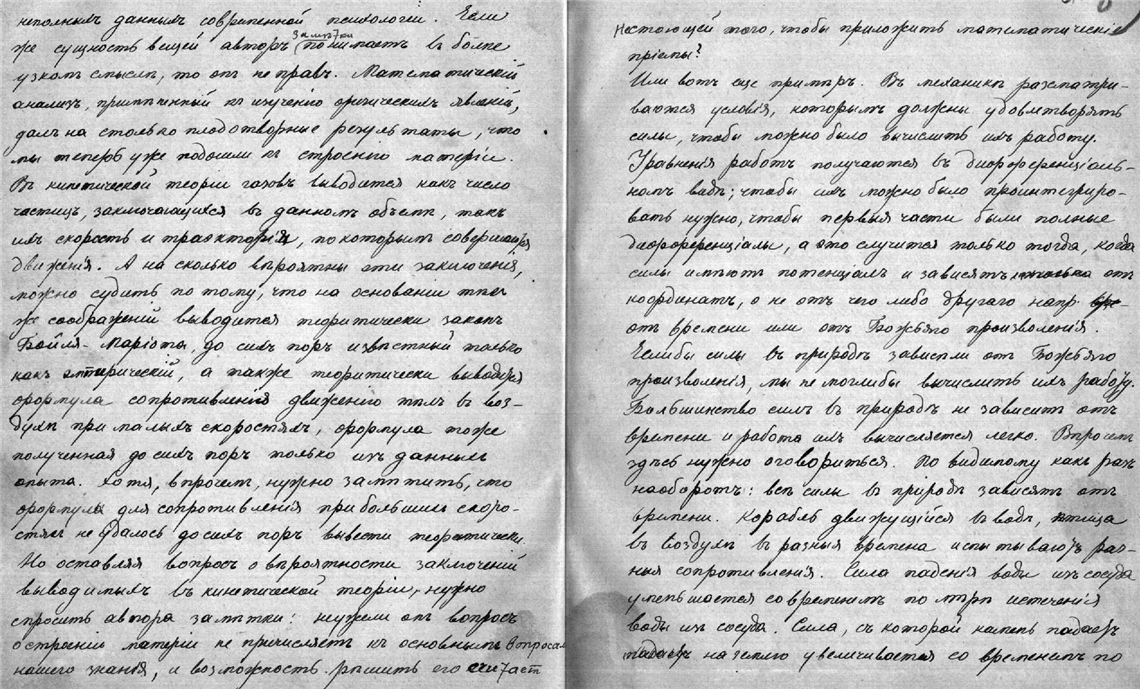 неполнымъ даннымъ современной психологіи. Если
же сущность вещей авторъ замѣтки понимаетъ въ болѣе
узкомъ смыслѣ, то онъ не правъ. Математическій
анализъ, примѣненный къ изученію физическихъ явленій,
далъ на столько плодотворные результаты, что
мы теперь уже подошли къ строенію матеріи.
Въ кинетической теоріи газовъ выводится какъ число
частицъ, заключающихся въ данномъ объемѣ, такъ
ихъ скорость и траэкторія, по которымъ совершаются
движенія. А на сколько вѣроятны эти заключенія,
можно судить по тому, что на основаніи тѣхъ
же соображеній выводится теоритически законъ
Бойля-Маріота, до сихъ поръ извѣстный только
какъ эмпирическій, а также теоритически выводится
формула сопротивленія движенію тѣлъ въ воз-
духѣ при малыхъ скоростяхъ, формула тоже
полученная до сихъ поръ только изъ данныхъ
опыта. Хотя, впрочемъ, нужно замѣтить, что
формулы для сопротивленія при большихъ скоро-
стяхъ не удалось до сихъ поръ вывести теоретически.
Но оставляя вопросъ о вѣроятности заключеній
выводимыхъ въ кинетической теоріи, нужно
спросить автора замѣтки: неужели онъ вопросъ
о строеніи матеріи не причисляетъ къ основнымъ вопросамъ
нашего знанія, и возможность рѣшить его считаетъ
настоящей того, чтобы приложить математическіе
пріемы?
Или вотъ еще примѣръ. Въ механикѣ разсматри-
ваются условія, которымъ должны удовлетворять
силы, чтобы можно было вычислить ихъ работу.
Уравненія работъ получаются въ дифференціаль-
номъ видѣ; чтобы ихъ можно было проинтегриро-
вать нужно, чтобы первыя части были полные
дифференціалы, а это случится только тогда, когда
силы имѣютъ потенціалъ и зависятъ только отъ
координатъ, а не отъ чего либо другаго напр.
отъ времени или отъ Божьяго произволенія.
Еслибы силы въ природѣ зависѣли отъ Божьяго
произволенія, мы не моглибы вычислить ихъ работу.
Большинство силъ въ природѣ не зависитъ отъ
времени и работа ихъ вычисляется легко. Впрочемъ
здѣсь нужно оговориться. По видимому какъ разъ
наоборотъ: всѣ силы въ природѣ зависятъ отъ
времени. Корабль движущійся въ водѣ, птица
въ воздухѣ въ разныя времена испытываютъ раз-
ныя сопротивленія. Сила паденія воды изъ сосуда
уменьшается со временемъ по мѣрѣ истеченія
воды изъ сосуда. Сила, съ которой камень падаетъ
на землю увеличивается со временемъ по